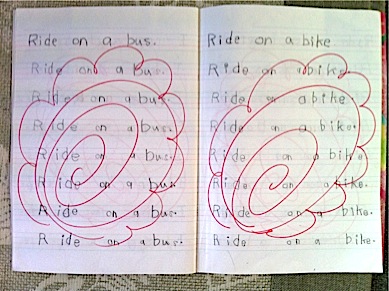 Ride on a bus.
Ride on a bus.
Ride on a bus.
Ride on a bus.
Ride on a bus.
Ride on a bus.
Ride on a bus.
Ride on a bus.
Ride on a bike
Ride on a bike.
Ride on a bike.
Ride on a bike.
Ride on a bike.
Ride on a bike.
Ride on a bike.
Ride on a bike.